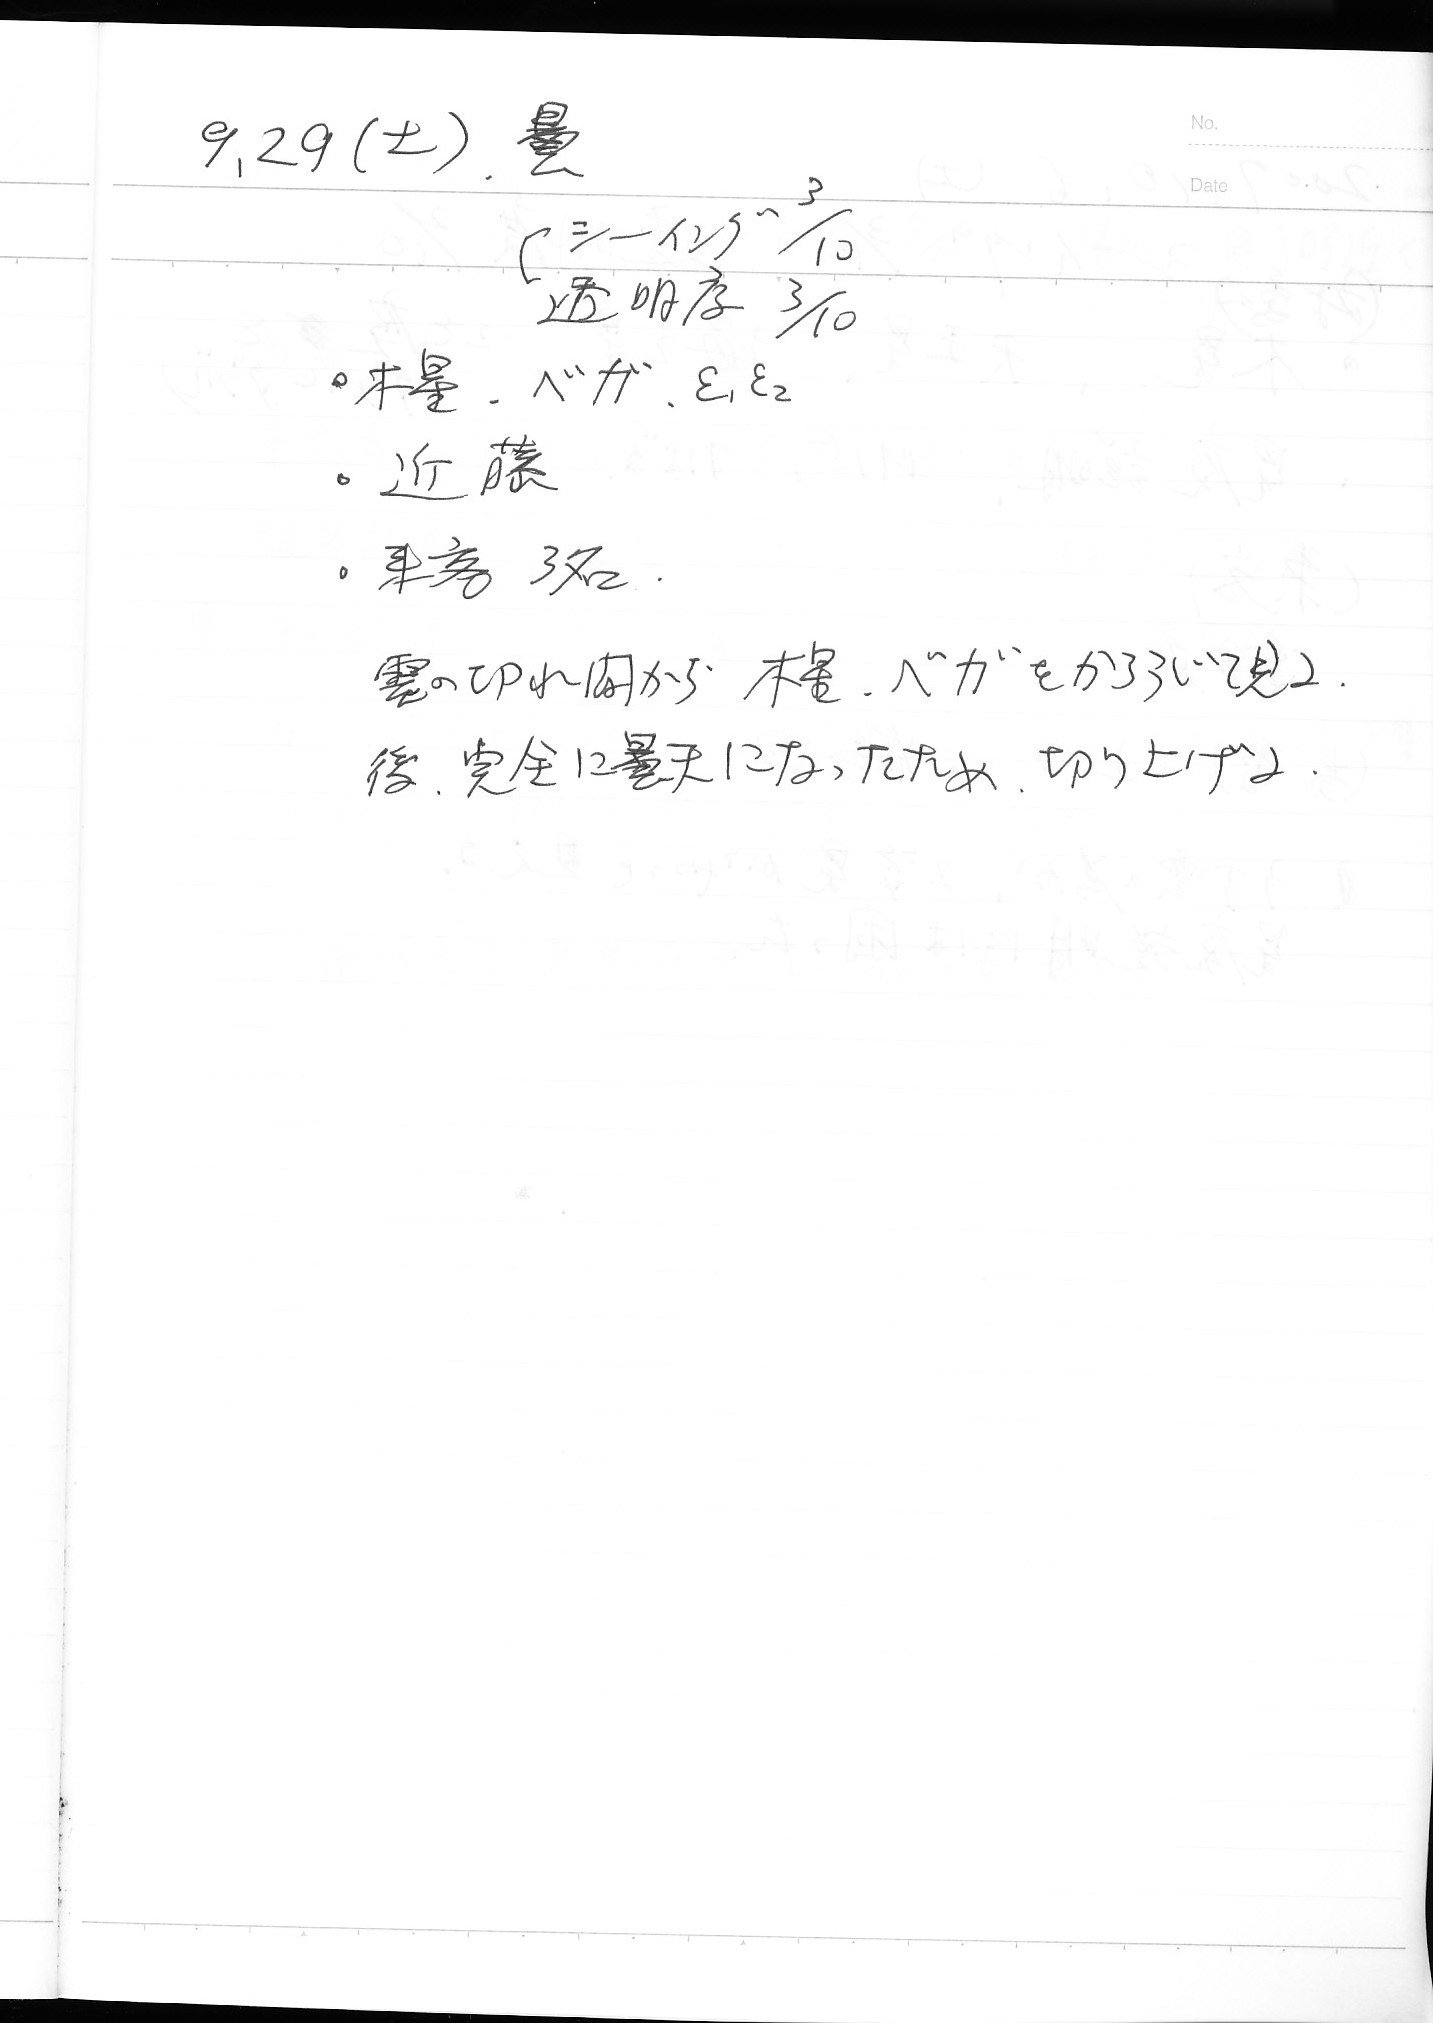 No.
9,29(土).曇
Date
シーイング 3/10
透明度 3/10
・木星.ベガ.ε1ε2
・近藤
・来客 3名.
雲の切れ間から 木星.ベガをかろうじて見て.
後.完全に曇天になったため.切り上げて.